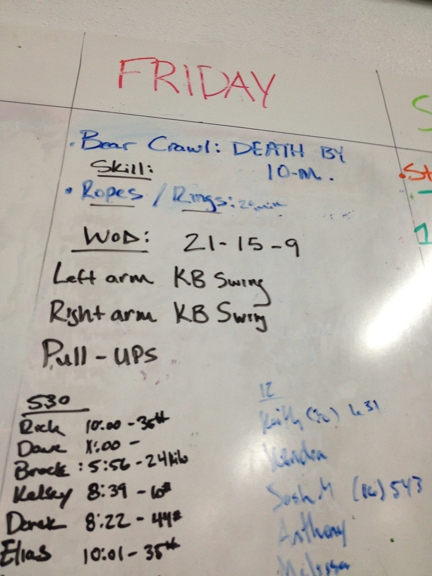 FRIDAY
• Bear Crawl: DEATH BY
10-m.
Skill:
• Ropes / Rings: 20min
WOD: 21-15-9
Left arm KB Swing
Right arm KB Swing
Pull-UPS
530
10:00 - 35#
Dave
Brock: 5:56 - 24kilo
Kelsey 8:39 -
Derek 8:22 - 44#
Elias 10:01 - 35#
12
Keith 4:31
Kendra
Josh M 5:43
Anthony
Melissa